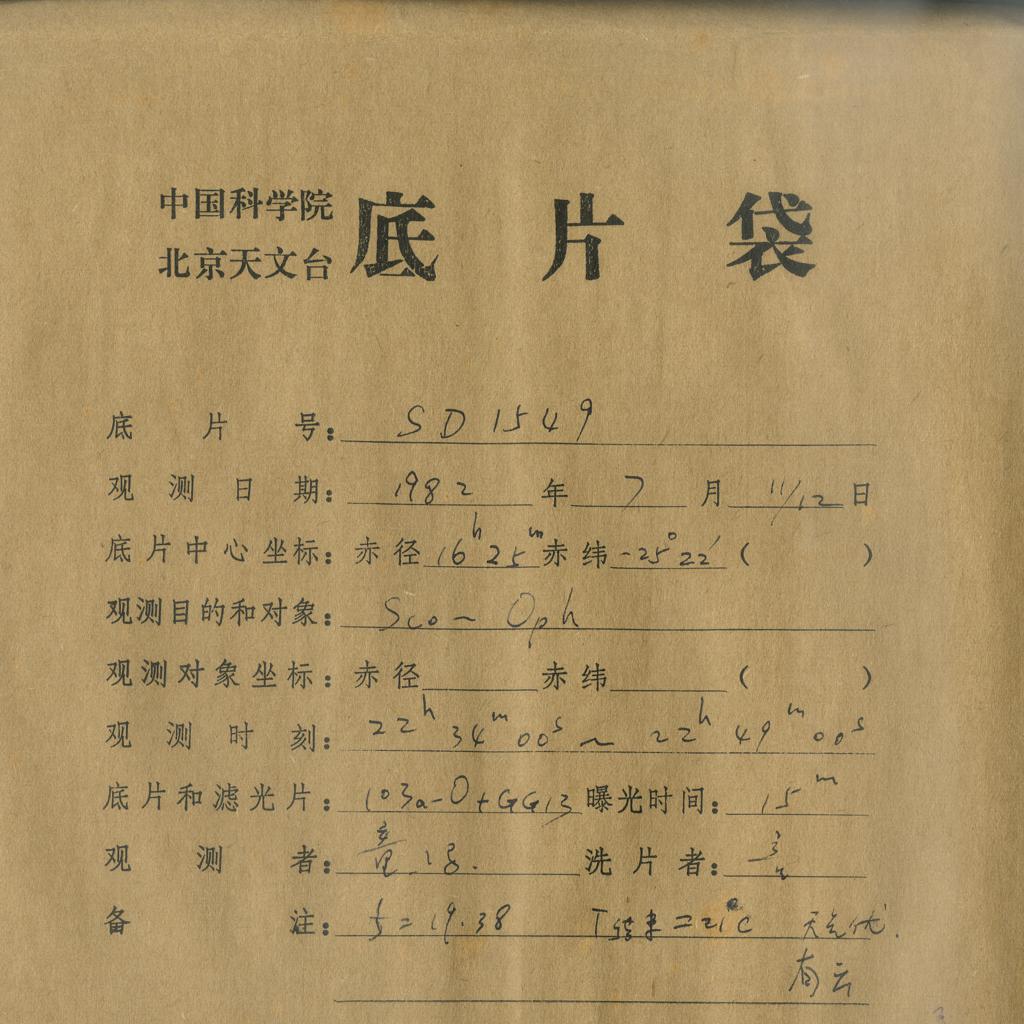 中国科学院
北京天文台
底片袋
底片号: SD1549
观测日期: 1982 年 7 月 11/12 日
底片中心坐标: 赤径 16h25m 赤纬 -25°22′ ( )
观测目的和对象: Sco~Oph
观测对象坐标: 赤径 赤纬 ( )
观测时刻: 22h34m00s ~ 22h49m00s
底片和滤光片: 103a-O+GG13 曝光时间: 15m
观测者: 洗片者:
备注: f=19.38 T结束=21°C
有云